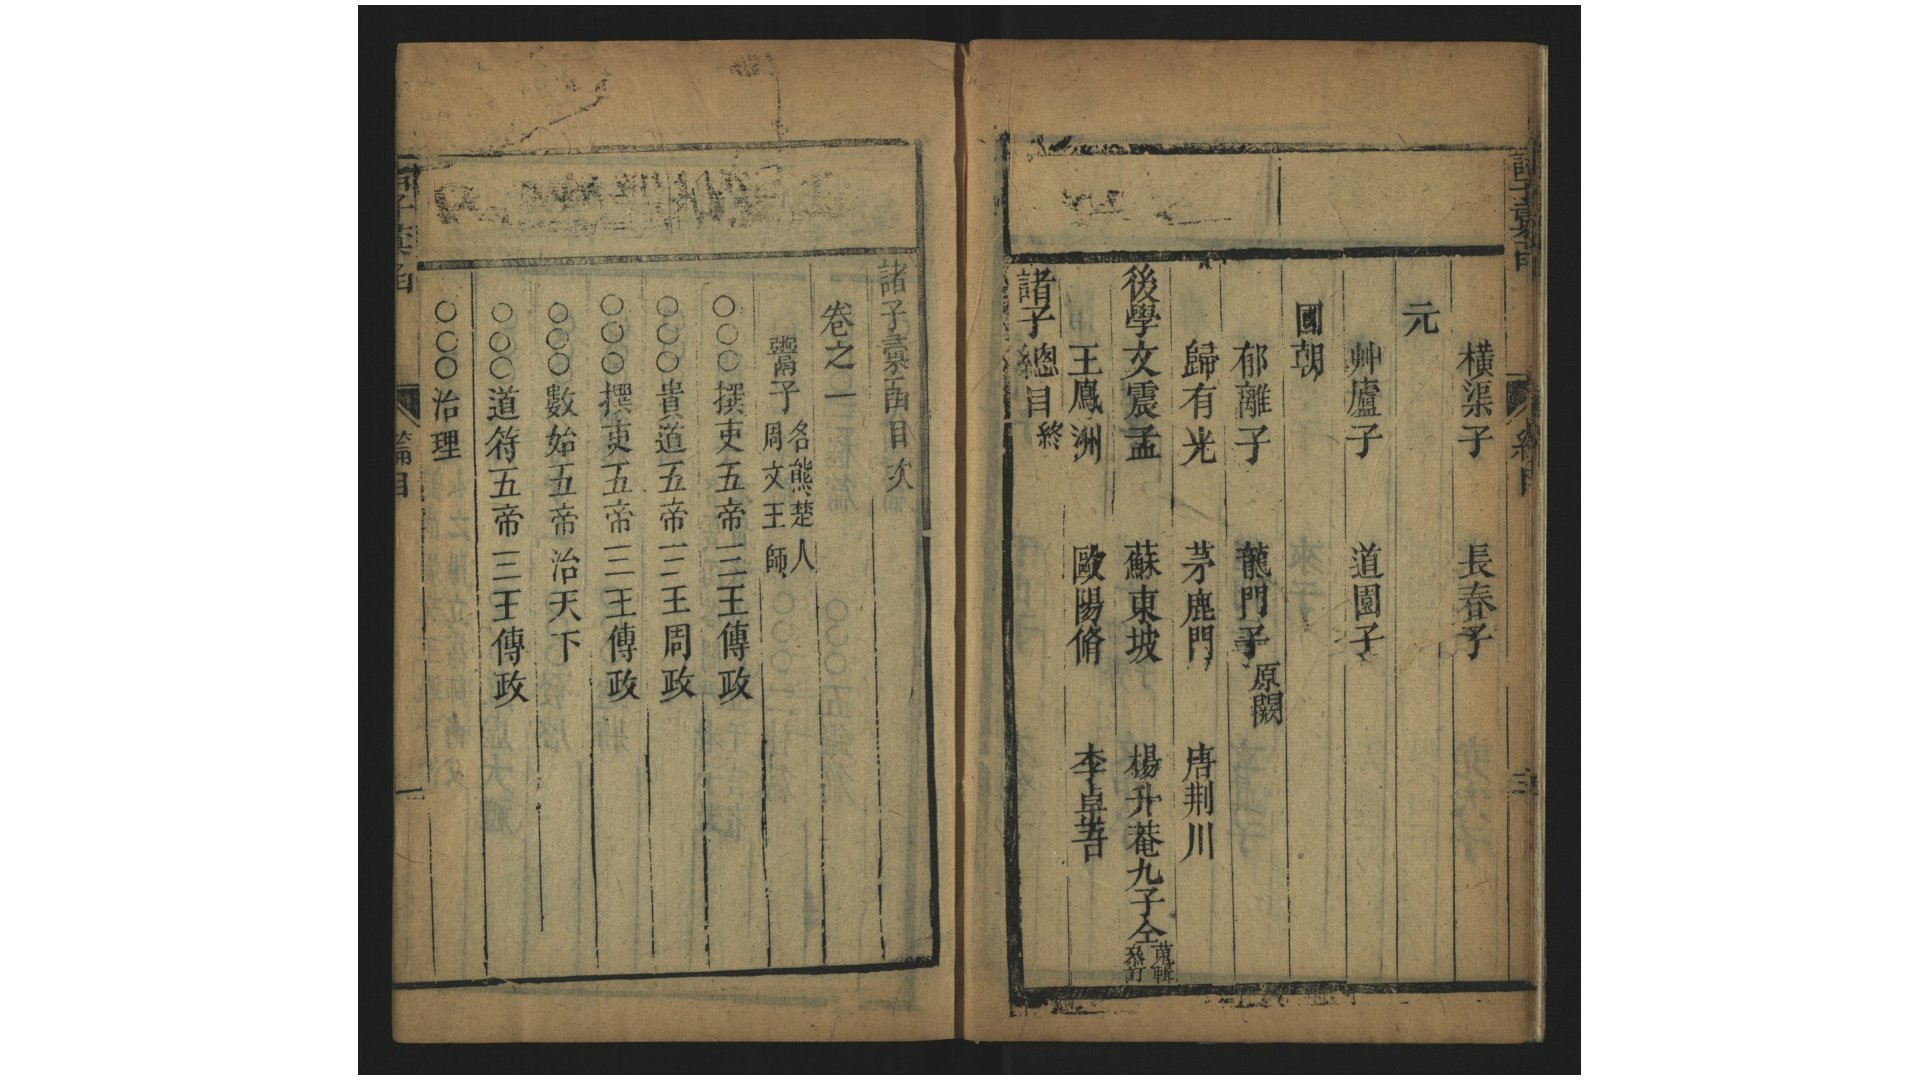 橫渠子　長春子
元
艸廬子　道園子
國朝
郁離子　龍門子 原闕
歸有光　茅鹿門　唐荆川
後學文震孟　蘇東坡　楊升菴九子仝 蒐輯 叅訂
王鳳洲　歐陽脩　李卓吾
諸子總目終
諸子彙函目次
卷之一
鬻子 名熊楚人 周文王師
○○○撰吏五帝三王傳政
○○○貴道五帝三王周政
○○○撰吏五帝三王傳政
○○○數始五帝治天下
○○○道符五帝三王傳政
○○○治理